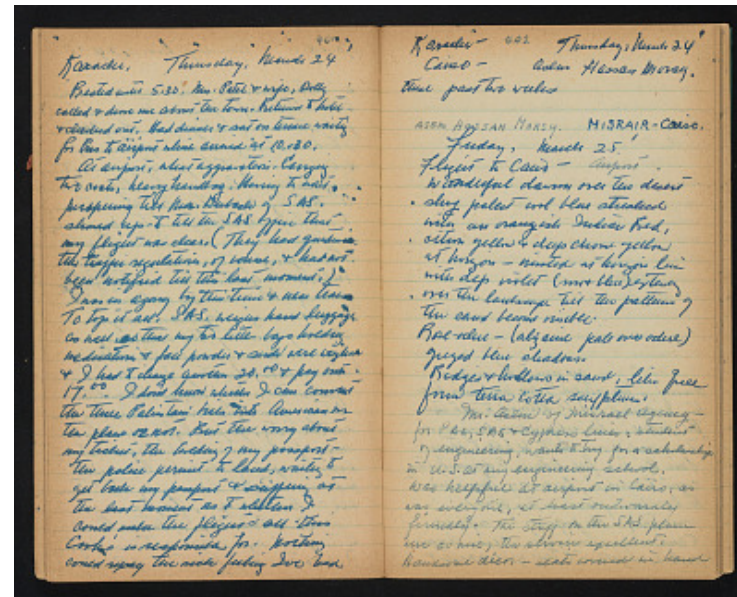 Karachi. Thursday, March 24
Rested until 5:30. Mrs. Patel & wife, Dolly
called & drove me about the town. Returned to hotel
& checked out. Had dinner & sat on terrace waiting
for bus to airport where arrived at 10:30.
At airport, what aggravation. Carrying
two coats, heavy handbag. Having to wait,
perspiring till Mr. of SAS.
showed up - to tell the SAS typist that
my flight was clear. (They had
the traffic regulation, of course, & had not
been notified till this last moment.)
I was in agony by this time & near tears
To top it all, SAS. weighs hand luggage
as well so that my two little bags holding
medication & face powder & were weighed
& I had to change another 20.00 & pay out
17.00 I don't know whether I can convert
the three Pakistani bills into American on
the plane or not. But the worry about
my ticket, the holding of my passport -
the police permit to land, waiting to
get back my passport & at
the last moment as to whether I
could make the plane & all this
Cook's is responsible for. Nothing
could repay the sick feeling I've had
Karachi - 602 Thursday, March 24
Cairo - Hassan Morsy.
these past two weeks
ASEM HASSAN MORSY. MISRAIR - Cairo.
Friday, March 25
Flight to Cairo - Airport.
Wonderful dawn over the desert
sky palest cool blue streaked
with an orangish Indian Red,
citron yellow & deep chrome yellow
at horizon - misted at horizon line
into deep violet (rose blue)
over the landscape till the pattern of
the sand became visible.
Rose-ochre - (alizarin pale rose ochre)
greyed blue shadows.
Ridges & hollows in sand, like free
form terra cotta sculpture.
Mr. Asem of Misrair agency -
for PAA, SAS & Cyprus lines, student
of engineering, wants to try for a scholarship
in U.S. at any engineering school.
Was helpful at airport in Cairo, as
was everyone, at least outwardly
friendly. The staff on the SAS plane
the service excellent.
Handsome decor - seats covered in hand